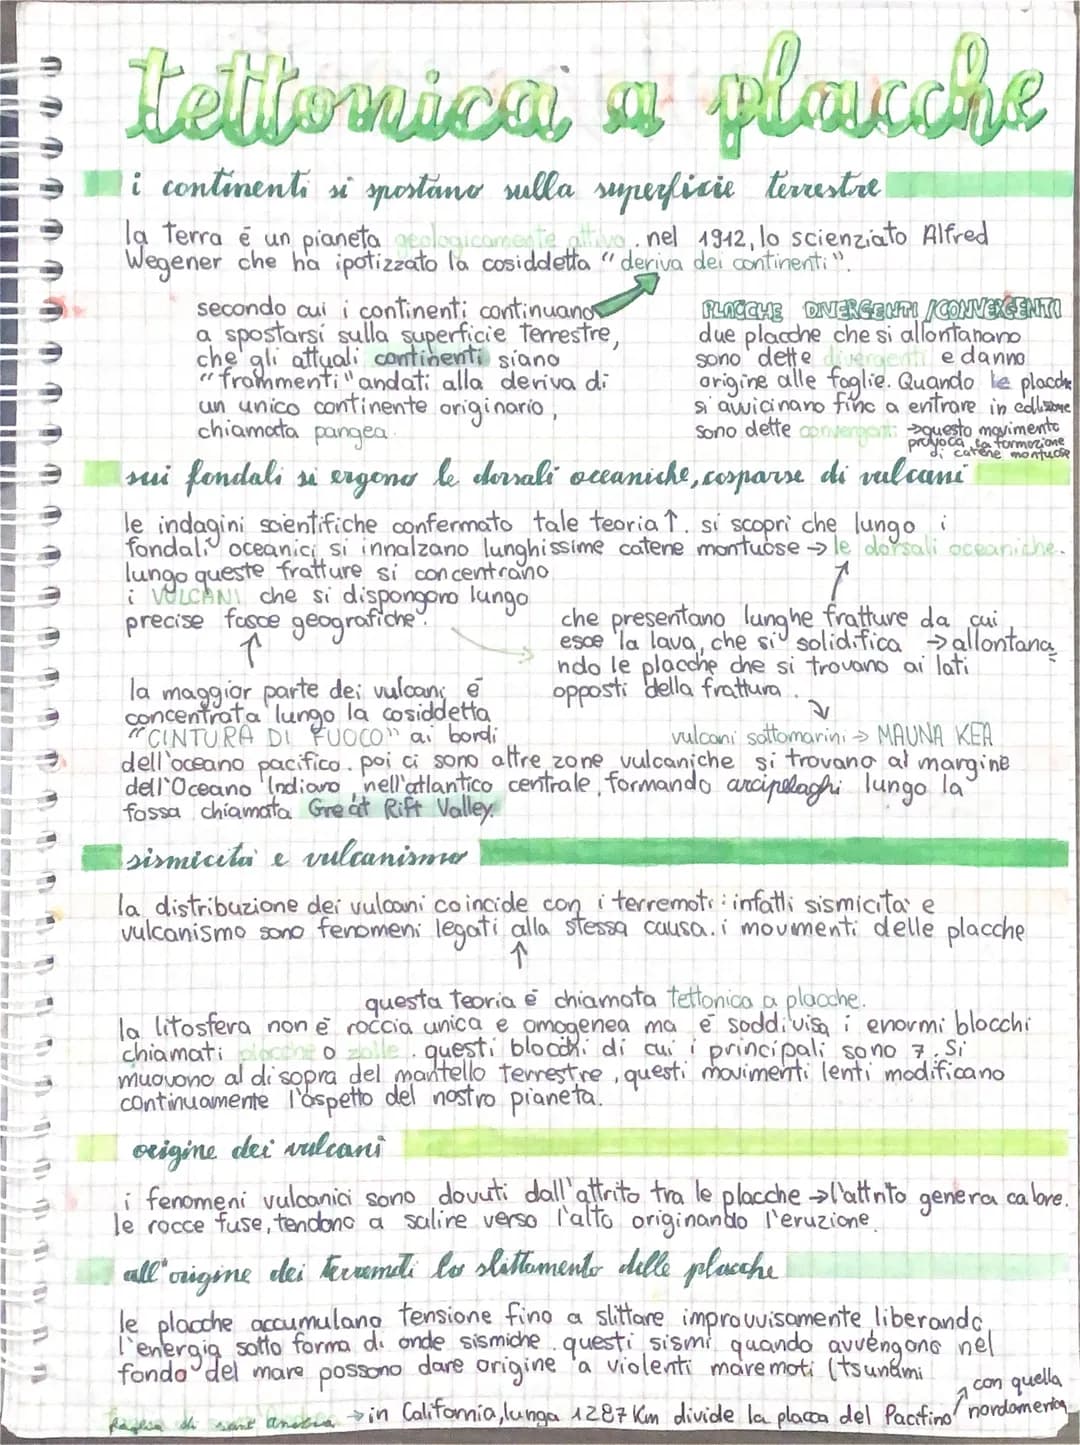 tettonica a placche
i continenti si spostano sulla superficie terrestre
la Terra è un pianeta geologicamente attivo. nel 1912, lo scienziato Alfred
Wegener che ha ipotizzato la cosiddetta "deriva dei continenti".
secondo cui i continenti continuano
a spostarsi sulla superficie terrestre,
che gli attuali continenti siano
"frammenti" andati alla deriva di
un unico continente originario,
chiamata pangea.
PLACCHE DIVERGENTI / CONVERGENTI
due placche che si allontanano
sono dette divergenti e danno
origine alle faglie. Quando le placche
si avvicinano fino a entrare in collisione
sono dette convergenti →questo movimento
provoca la formazione
di catene montuose
sui fondali si ergono le dorsali oceaniche, cosparse di vulcani
le indagini scientifiche confermato tale teoria↑. si scoprì che lungo i
fondali oceanici si innalzano lunghissime catene montuose → le dorsali oceaniche.
lungo queste fratture si concentrano
i VULCANI che si dispongono lungo
precise fasce geografiche.
che presentano lunghe fratture da cui
esce la lava, che si solidifica → allontana
ndo le placche che si trovano ai lati
opposti della frattura.
la maggior parte dei vulcani è
concentrata lungo la cosiddetta
"CINTURA DI FUOCO" ai bordi
vulcani sottomarini → MAUNA KEA
dell'oceano pacifico. poi ci sono altre zone vulcaniche si trovano al margine
dell'Oceano Indiano, nell'atlantico centrale, formando arcipelaghi lungo la
fossa chiamata Great Rift Valley.
sismicità e vulcanismo
la distribuzione dei vulcani coincide con i terremoti: infatti sismicità e
vulcanismo sono fenomeni legati alla stessa causa. i movimenti delle placche
questa teoria è chiamata tettonica a placche.
la litosfera non è roccia unica e omogenea ma è soddivisa i enormi blocchi
chiamati placche o zolle. questi blocchi di cui i principali sono 7. Si
muovono al di sopra del mantello terrestre, questi movimenti lenti modificano
continuamente l'aspetto del nostro pianeta.
origine dei vulcani
i fenomeni vulcanici sono dovuti dall'attrito tra le placche → l'attrito genera calore.
le rocce fuse, tendono a salire verso l'alto originando l'eruzione.
all'origine dei terremoti lo slittamento delle placche
le placche accumulano tensione fino a slittare improvvisamente liberando
l'energia sotto forma di onde sismiche. questi sismi quando avvengono nel
fondo del mare possono dare origine a violenti maremoti (tsunami
con quella
faglia di sant'andrea → in California, lunga 1287 Km divide la placca del Pacifino nordamerica